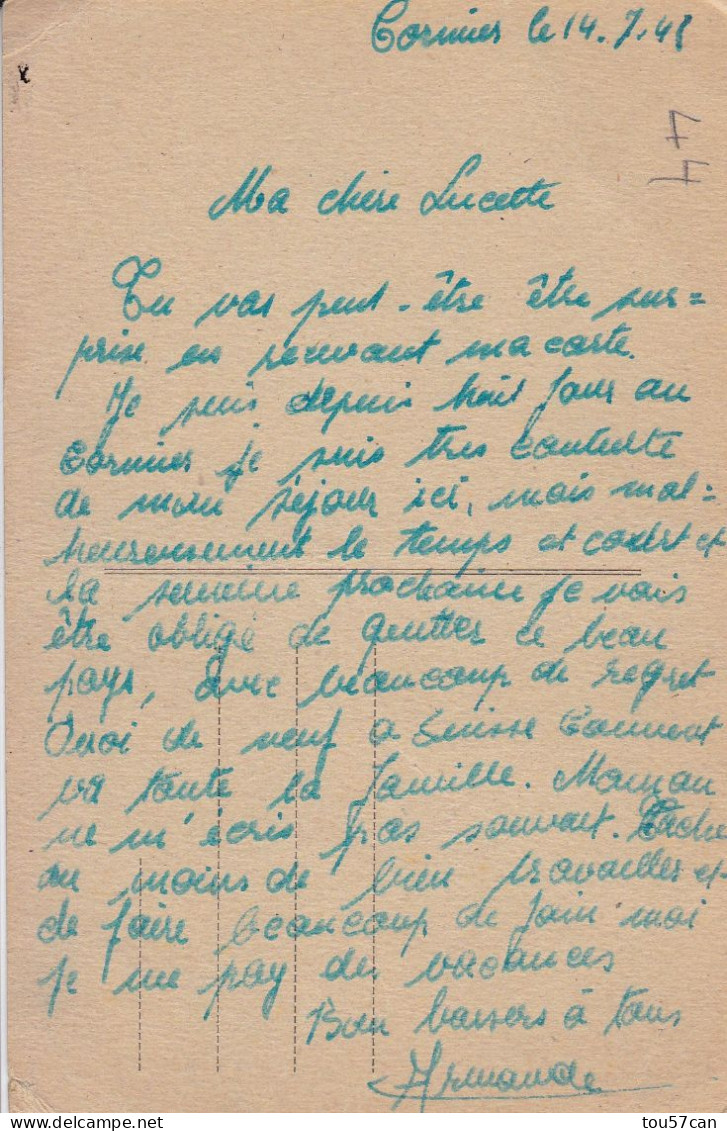 Cormier le 14.7.48
47
Ma chère Lucette
Tu vas peut-être être sur=
prise en recevant ma carte.
Je suis depuis huit jour au
Cormier je suis tres contente
de mon séjour ici, mais mal=
heureusement le temps et court et
la semaine prochaine je vais
être obligé de quitter ce beau
pays, avec beaucoup de regret
Quoi de neuf a Suisse Comment
va toute la famille. Maman
ne m'écris pas souvent. Tache
au moins de bien travailler et
de faire beaucoup de foin moi
je me pay des vacances
Bon baisers à tous
Armande
tou57can